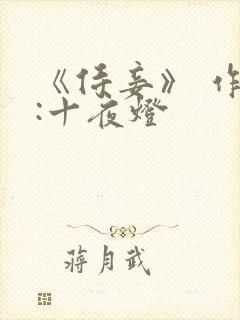 《侍妾》 作
:十夜燈
蔣月武